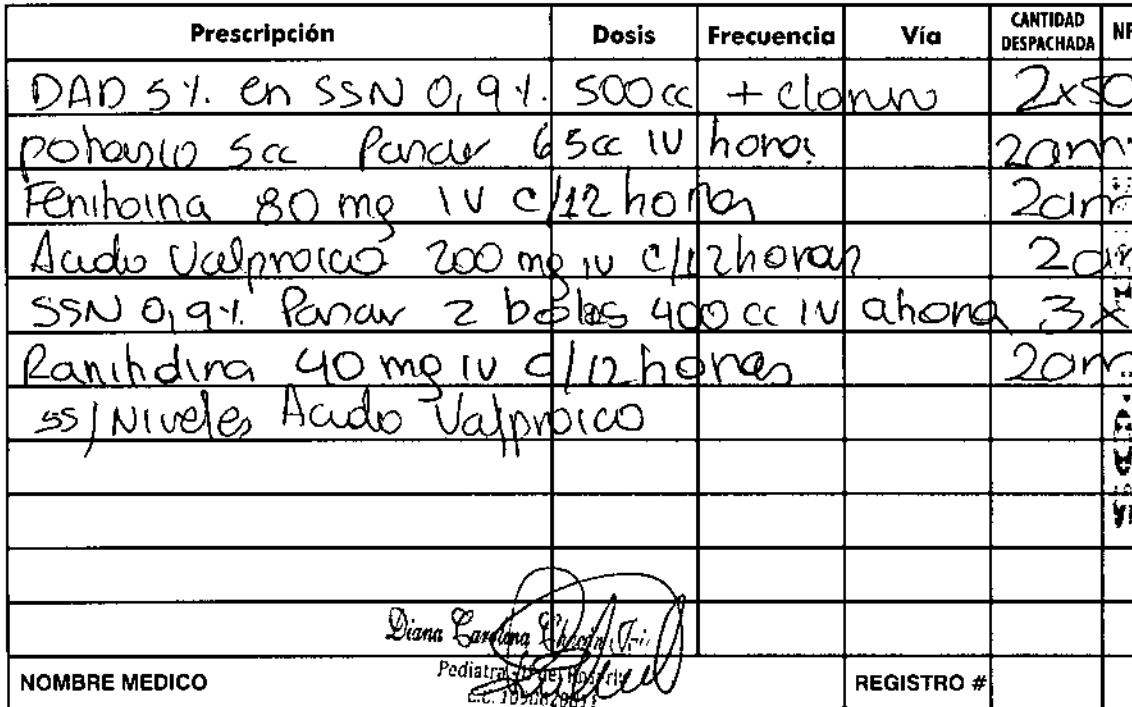 Prescripción Dosis Frecuencia Vía CANTIDAD DESPACHADA
DAD 5%. en SSN 0,9%. 500 cc + cloruro 2x50
potasio 5cc Pasar 65cc IV hora 2am
Fenitoina 80 mg IV c/12 horas 2am
Acido Valproico 200 mg IV c/12 horas 2am
SSN 0,9%. Pasar 2 bolos 400 cc IV ahora 3x
Ranitidina 40 mg IV c/12 horas 2am
ss/Niveles Acido Valproico
Diana Carolina
Pediatra
NOMBRE MEDICO REGISTRO #